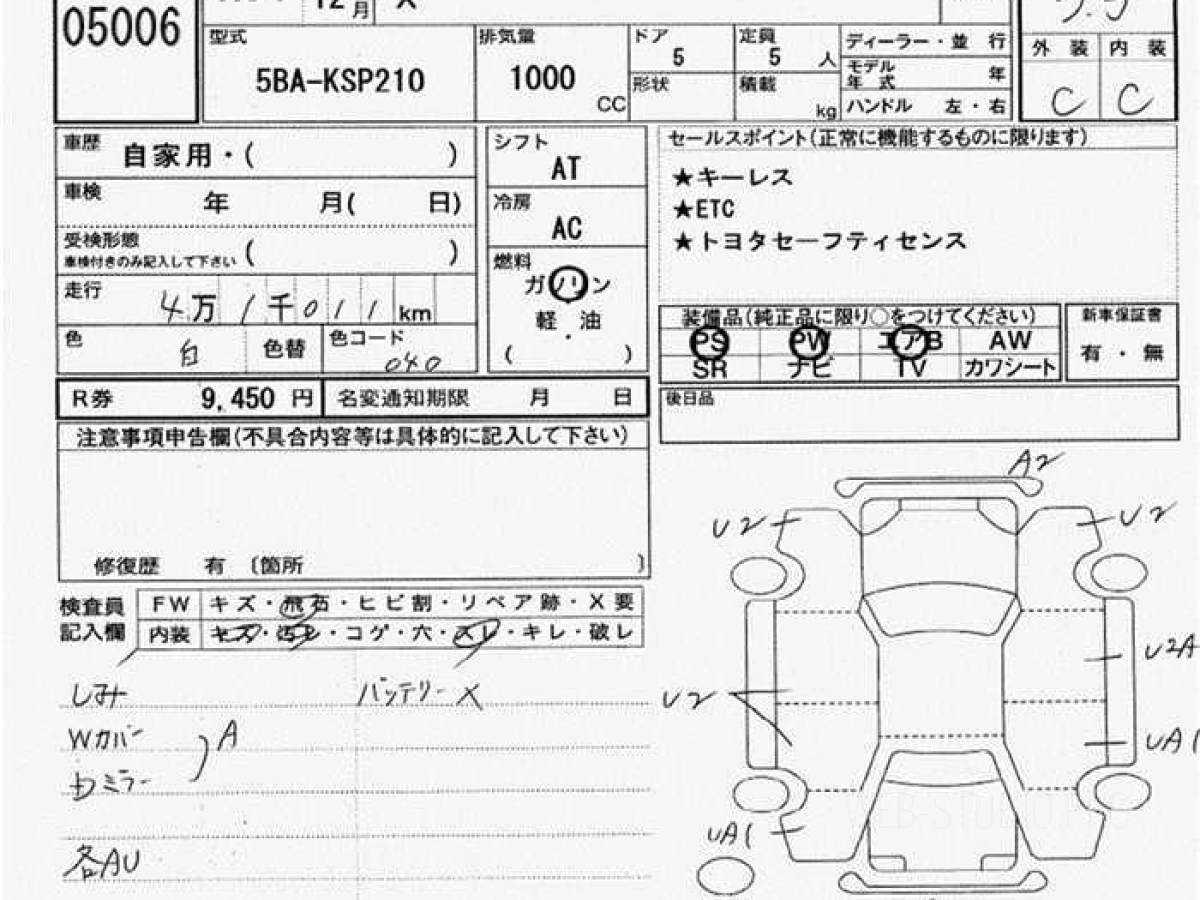 05006
12月 X
型式 5BA-KSP210
排気量 1000 CC
ドア 5
定員 5 人
形状
積載 kg
ディーラー・並 行
モデル年式 年
ハンドル 左・右
外 装 内 装
C C
車歴 自家用・( )
車検 年 月( 日)
受検形態 ( )
車検付きのみ記入して下さい
走行 4万1千011km
色 白 色替 色コード 040
シフト
AT
冷房
AC
燃料
ガソリン
軽・油
( )
セールスポイント(正常に機能するものに限ります)
★キーレス
★ETC
★トヨタセーフティセンス
装備品(純正品に限り○をつけてください)
PS PW エアB AW
SR ナビ TV カワシート
新車保証書
有・無
R券 9,450 円 名変通知期限 月 日
後日品
注意事項申告欄(不具合内容等は具体的に記入して下さい)
修復歴 有 〔箇所 〕
検査員記入欄
FW キズ・飛石・ヒビ割・リペア跡・X要
内装 キズ・汚レ・コゲ・穴・スレ・キレ・破レ
しみ バッテリーX
Wカバー
ミラー
A
各AU
A2
U2
U2
U2A
U2
UA1
UA1